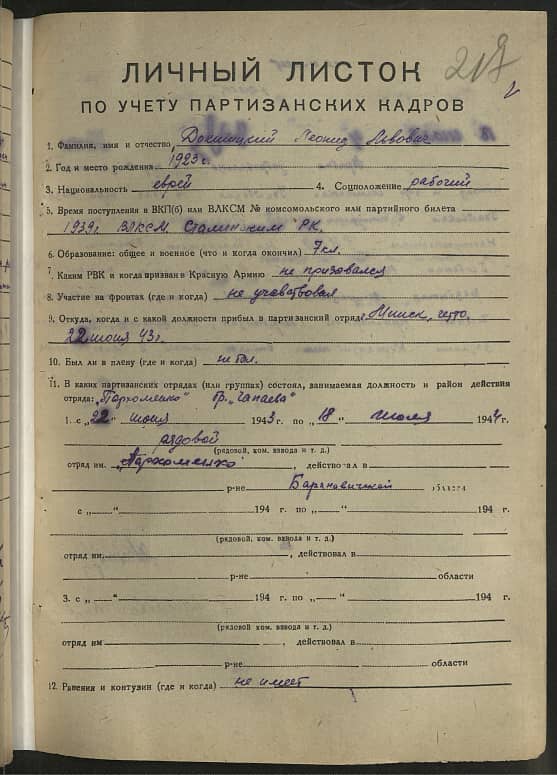 217
2
ЛИЧНЫЙ ЛИСТОК
ПО УЧЕТУ ПАРТИЗАНСКИХ КАДРОВ
1. Фамилия, имя и отчество Докшицкий Леонид Львович
2. Год и место рождения 1923 г.
3. Национальность еврей 4. Соцположение рабочий
5. Время поступления в ВКП(б) или ВЛКСМ № комсомольского или партийного билета
1939 г. ВЛКСМ Сталинским РК.
6. Образование: общее и военное (что и когда окончил) 7 кл.
7. Каким РВК и когда призван в Красную Армию не призовался
8. Участие на фронтах (где и когда) не учавствовал
9. Откуда, когда и с какой должности прибыл в партизанский отряд Минск, гетто,
22 июня 43 г.
10. Был ли в плену (где и когда) не был.
11. В каких партизанских отрядах (или группах) состоял, занимаемая должность и район действия
отряда: "Пархоменко" бр. "Чапаева"
1. с „22" июня 1943 г. по „18" июля 1944 г.
рядовой
(рядовой, ком. взвода и т. д.)
отряд им. "Пархоменко", действовал в
р-не Барановичской области
с „ — " 194 г. по „ — " 194 г.
(рядовой, ком. взвода и т. д.)
отряд им. , действовал в
р-не области
3. с „ — " 194 г. по „ — " 194 г.
(рядовой, ком. взвода и т. д.)
отряд им , действовал в
р-не области
12. Ранения и контузии (где и когда) не имеет